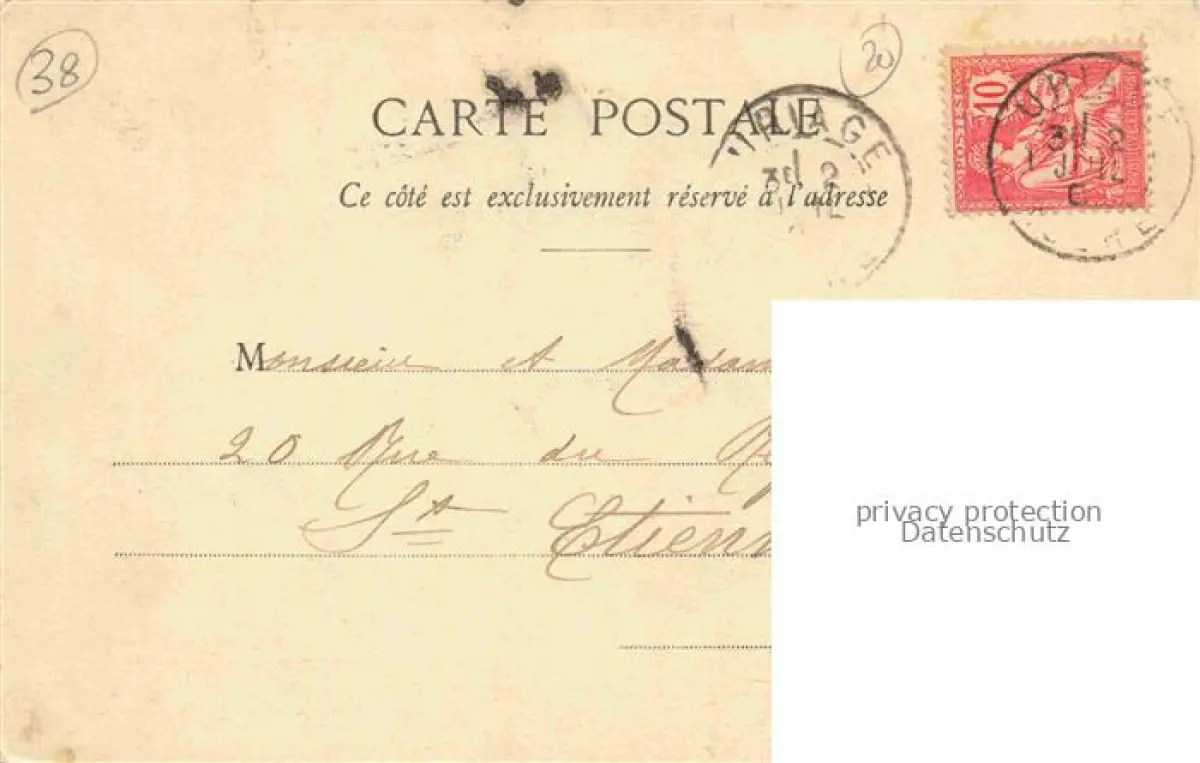 38
20
CARTE POSTALE
Ce côté est exclusivement réservé à l'adresse
URIAGE
POSTES 10
Monsieur et Madam
20 Rue du
St Etienn
privacy protection
Datenschutz